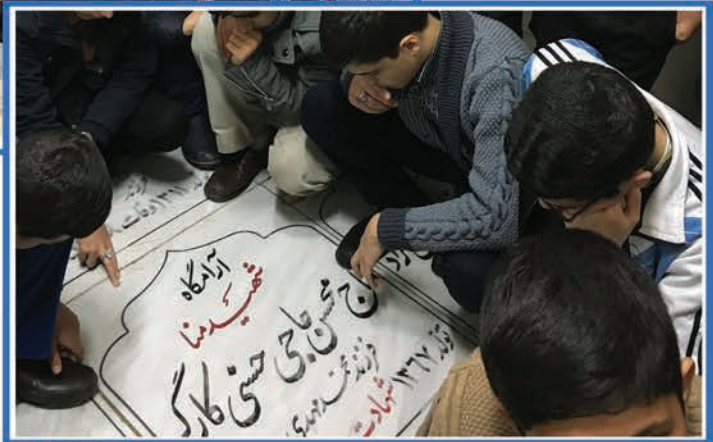 آرامگاه
شهید منا
ج محسن حاجی حسنی کارگر
فرزند محمد مهدی
تولد ۱۳۶۷ شهادت